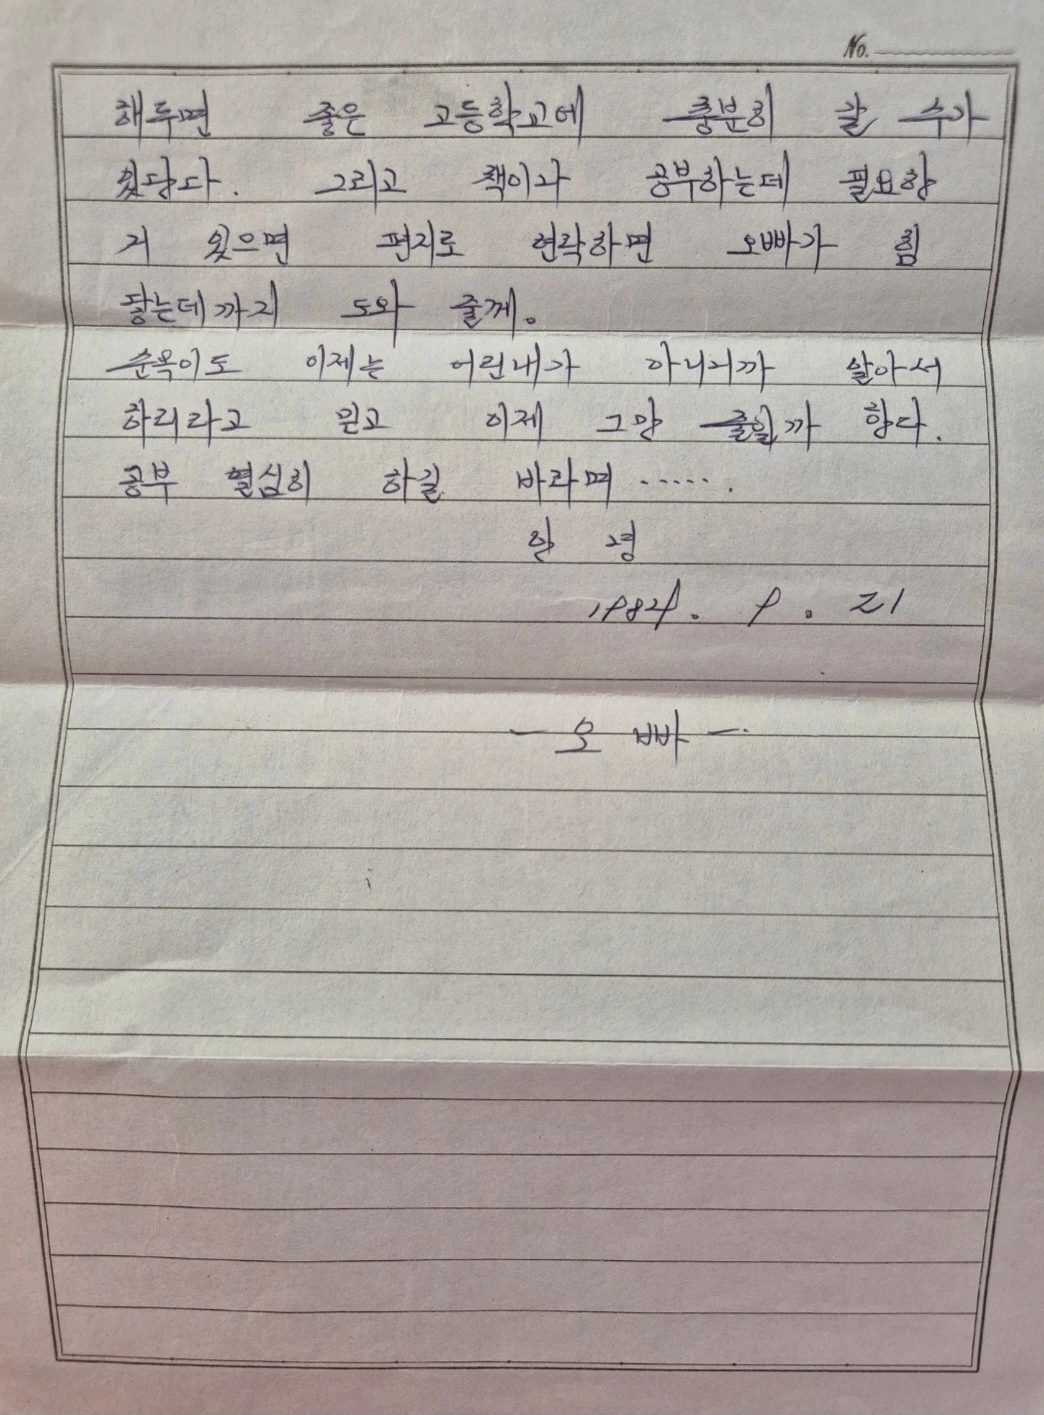 No.
해두면 좋은 고등학교에 충분히 갈 수가
있단다. 그리고 책이나 공부하는데 필요한
거 있으면 편지로 연락하면 오빠가 힘
닿는데까지 도와 줄께.
순옥이도 이제는 어린내가 아니니까 알아서
하리라고 믿고 이제 그만 줄일까 한다.
공부 열심히 하길 바라며 …….
안 녕
1984. 9. 21
- 오 빠 -